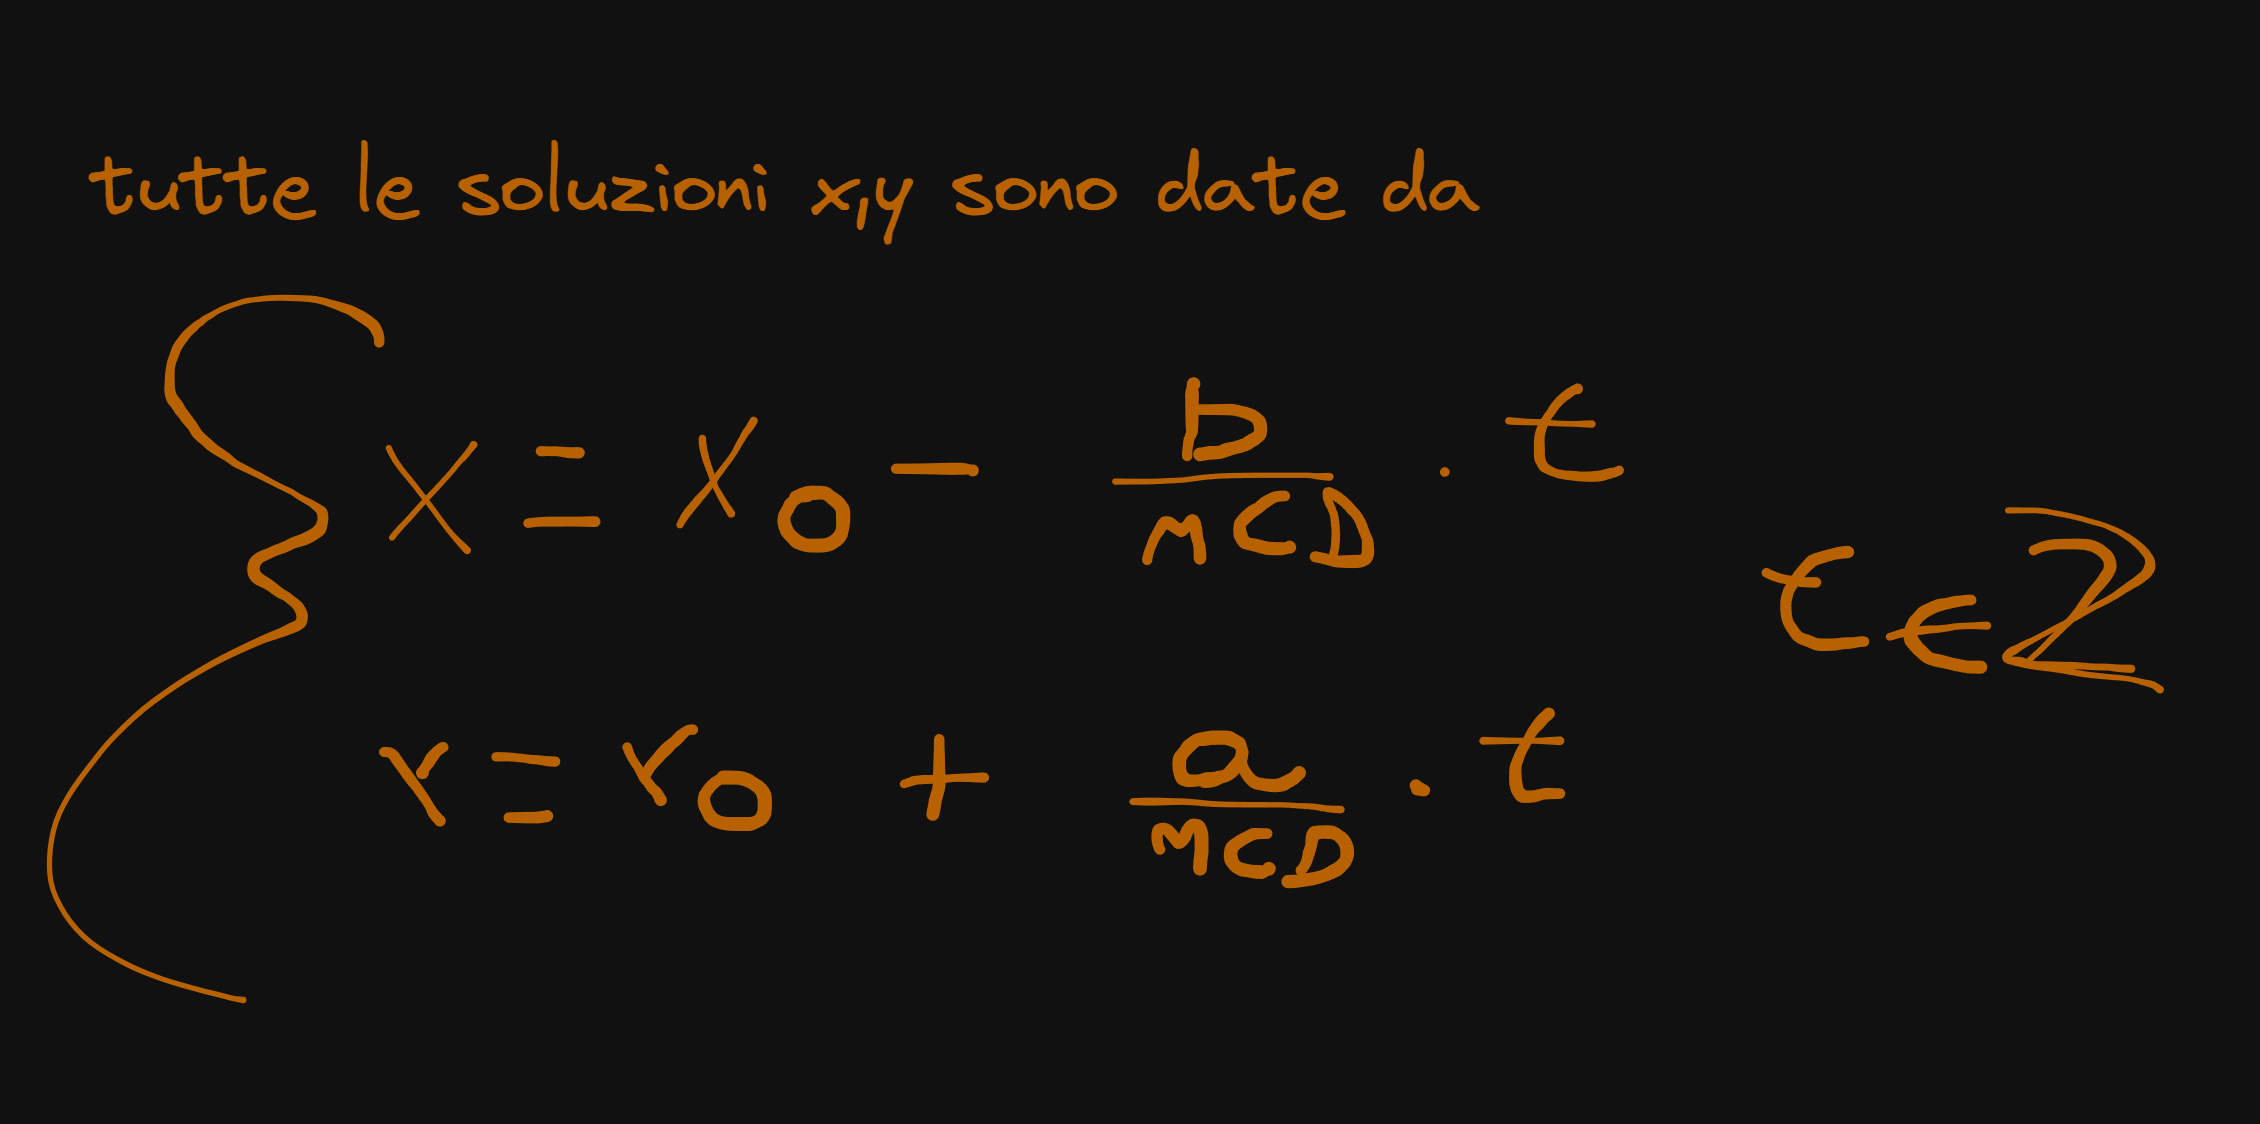 tutte le soluzioni x,y sono date da
x = x₀ - b/MCD · t
t ∈ ℤ
y = y₀ + a/MCD · t